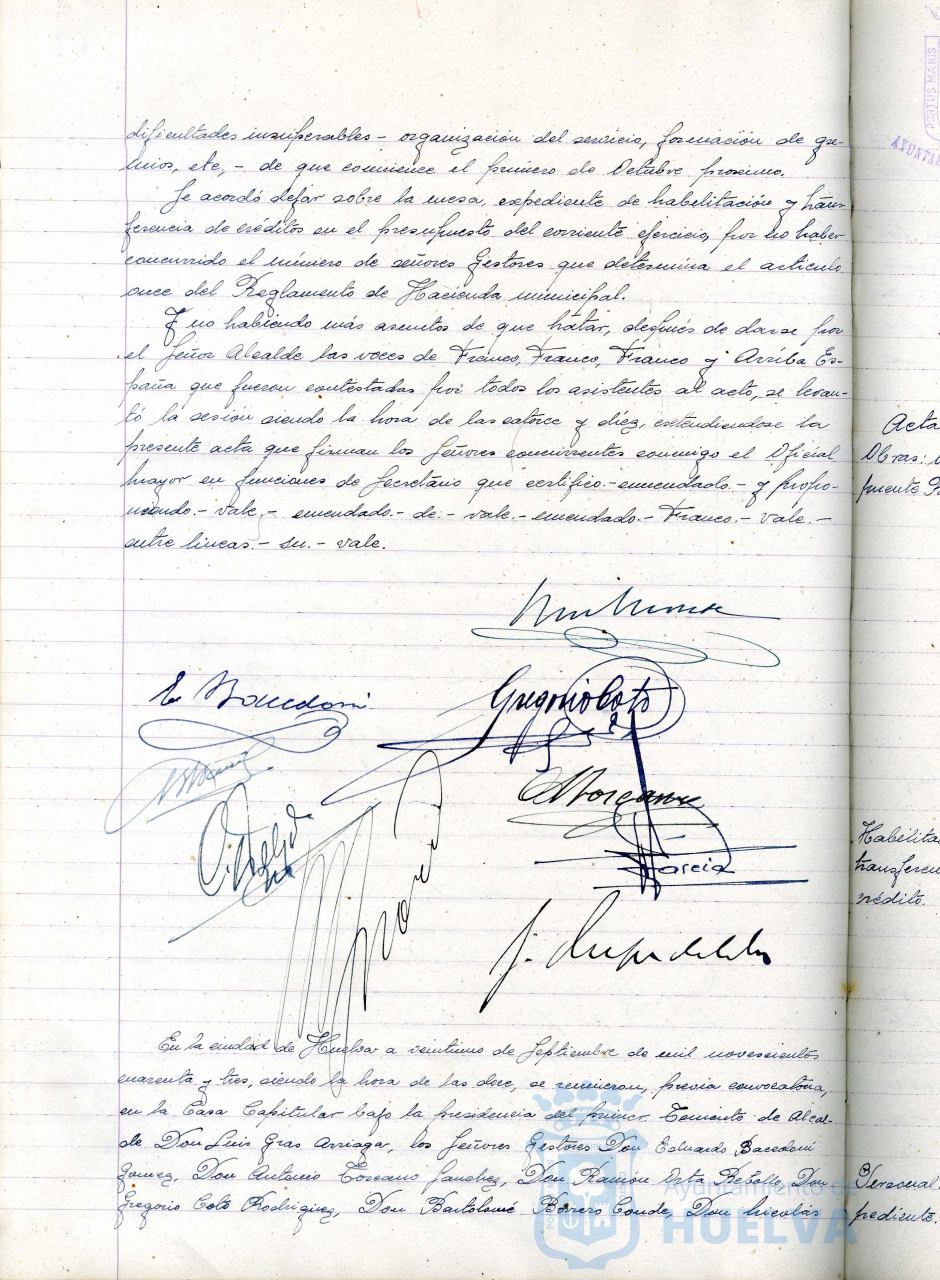 dificultades insuperables - organización del servicio, formación de gre-
mios, etc, - de que comience el primero de Octubre proximo.
Se acordó dejar sobre la mesa, expediente de habilitación y trans-
ferencia de créditos en el presupuesto del corriente ejercicio, por no haber
concurrido el número de señores Gestores que determina el articulo
once del Reglamento de Hacienda municipal.
Y no habiendo más asuntos de que tratar, después de darse por
el Señor Alcalde las voces de Franco, Franco, Franco y Arriba Es-
paña que fueron contestadas por todos los asistentes al acto, se levan-
tó la sesión siendo la hora de las catorce y diéz, extendiendose la
presente acta que firman los Señores concurrentes conmigo el Oficial
mayor en funciones de Secretario que certifico.- enmendado.- y propo-
niendo.- vale.- enmendado.- de.- vale.- enmendado.- Franco.- vale.-
entre lineas.- su.- vale.
E. Bacedoni
Gregorio Coto
Garcia
En la ciudad de Huelva a veintiuno de Septiembre de mil novescientos
cuarenta y tres, siendo la hora de las doce, se reunieron, previa convocatoria,
en la Casa Capitular bajo la presidencia del primer Teniente de Alcal-
de Don Luis Gras Arriaga, los Señores Gestores Don Eduardo Bacedoni
Gomez, Don Antonio Toscano Sanchez, Don Ramón Orta Rebollo, Don
Gregorio Coto Rodriguez, Don Bartolomé Borrero Conde, Don Nicolás
PORTUS MARIS
AYUNTA
Acta
Obras:
puente
Habilita
transferen
crédito.
Personal.
pediente.
Ayuntamiento de
HUELVA